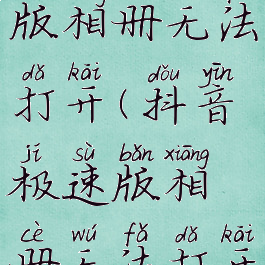 版相册无法
dǎ kāi dǒu yīn
打开(抖音
jí sù bǎn xiāng
极速版相
cè wú fǎ dǎ kāi
册无法打开